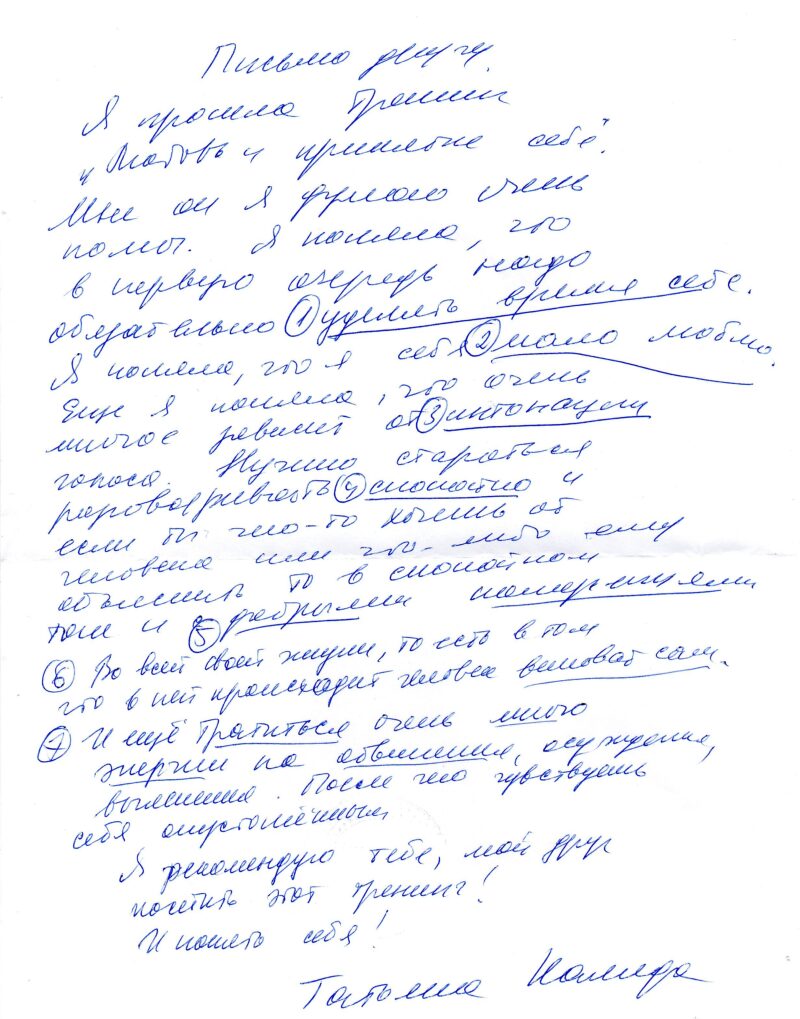 Письмо другу.
Я прошла Тренинг
"Любовь и принятие себя".
Мне он я думаю очень
помог. Я поняла, что
в первую очередь надо
обязательно ① уделять время себе.
Я поняла, что я себя ② мало люблю.
Еще я поняла, что очень
многое зависит от ③ интонации
голоса. Нужно стараться
разговаривать ④ спокойно и
если ты чего-то хочешь от
человека или что-либо ему
объяснить то в спокойном
тоне и ⑤ добрыми намерениями
⑥ Во всей своей жизни, то есть в том
что в ней происходит человек виноват сам.
⑦ И ещё Тратиться очень много
энергии на обвинения, осуждения,
выяснения. После чего чувствуешь
себя опустошённым
Я рекомендую тебе, мой друг
посетить этот тренинг!
И понять себя!
Татьяна